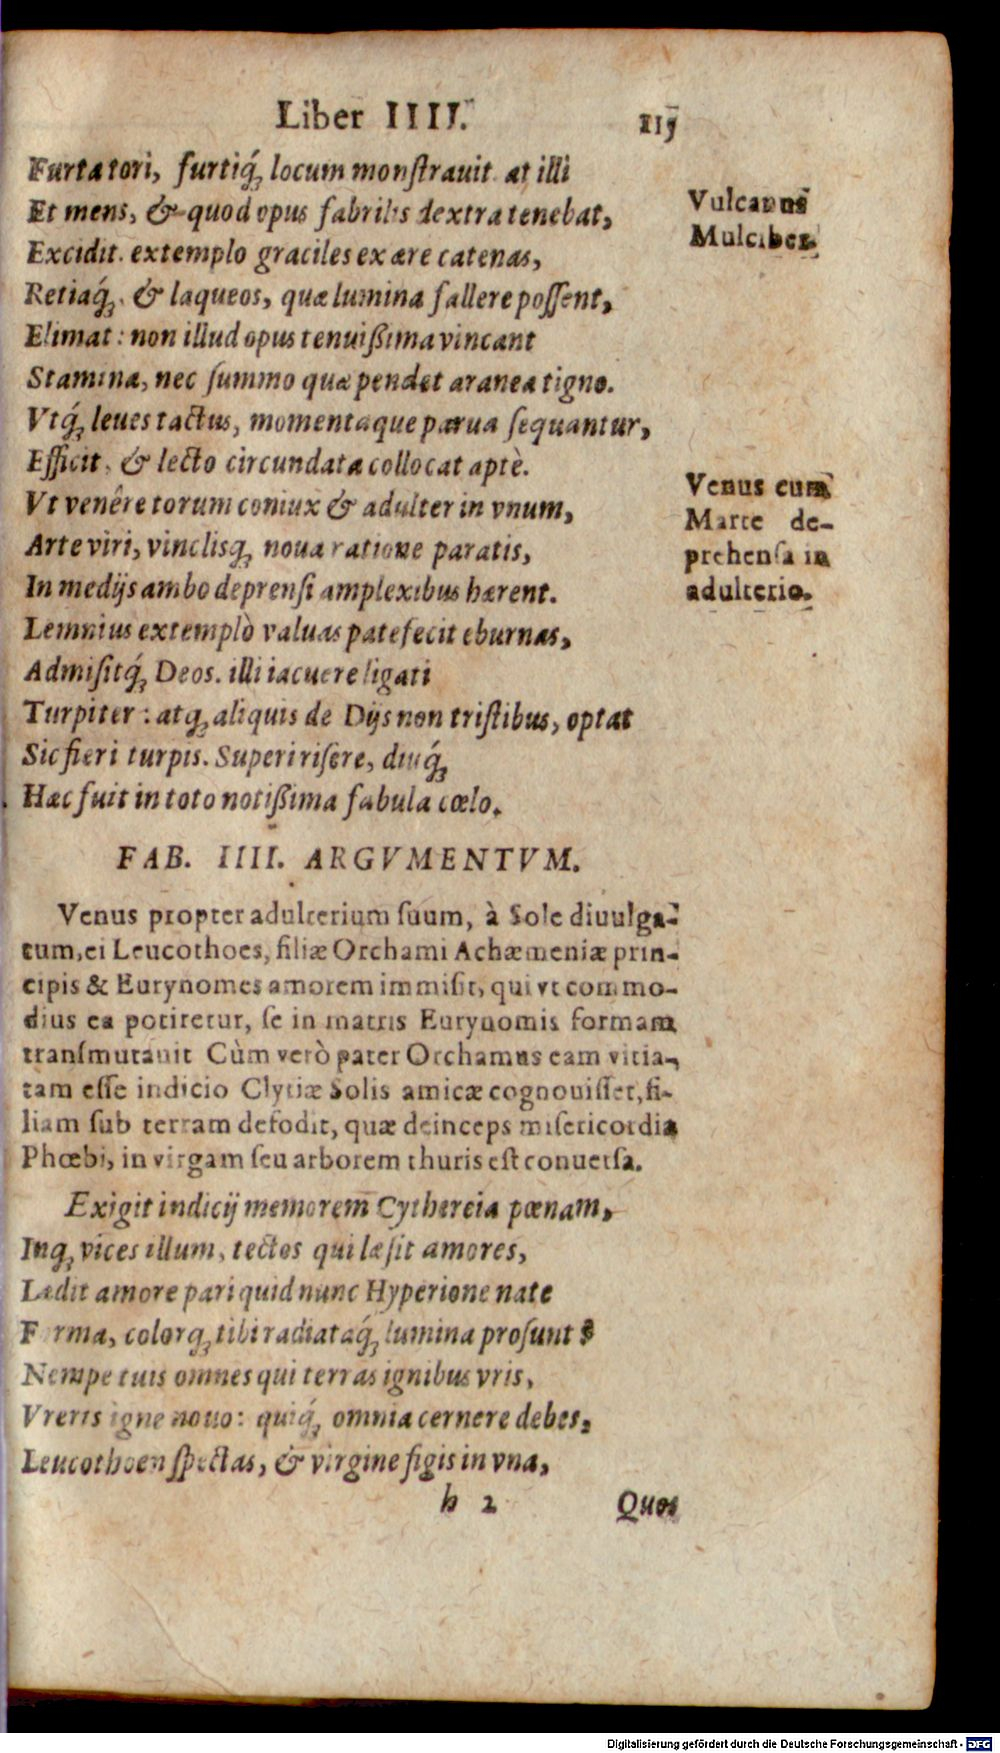 Liber IIII. 115
Furta tori, furtiq́; locum monſtrauit. at illi
Et mens, & quod opus fabrilis dextra tenebat,
Excidit. extemplo graciles ex ære catenas,
Retiaq́;, & laqueos, quæ lumina fallere poſſent,
Elimat: non illud opus tenuißima vincant
Stamina, nec ſummo quæ pendet aranea tigno.
Vtq́; leues tactus, momentaque parua ſequantur,
Efficit, & lecto circundata collocat aptè.
Vt venêre torum coniux & adulter in vnum,
Arte viri, vinclisq; noua ratione paratis,
In medijs ambo deprenſi amplexibus hærent.
Lemnius extemplò valuas patefecit eburnas,
Admiſitq́; Deos. illi iacuere ligati
Turpiter: atq; aliquis de Dijs non triſtibus, optat
Sic fieri turpis. Superi riſere, diuq́;
Hæc fuit in toto notißima fabula cœlo.
Vulcanus
Mulciber.
Venus cum
Marte de-
prehenſa in
adulterio.
FAB. IIII. ARGVMENTVM.
Venus propter adulterium ſuum, à Sole diuulga-
tum, ei Leucothoes, filiæ Orchami Achæmeniæ prin-
cipis & Eurynomes amorem immiſit, qui vt commo-
dius ea potiretur, ſe in matris Eurynomis formam
tranſmutauit Cùm verò pater Orchamus eam vitia-
tam eſſe indicio Clytiæ Solis amicæ cognouiſſet, fi-
liam ſub terram defodit, quæ deinceps miſericordia
Phœbi, in virgam ſeu arborem thuris eſt conuerſa.
Exigit indicij memorem Cythereia pœnam,
Inq; vices illum, tectos qui læſit amores,
Lædit amore pari quid nunc Hyperione nate
Forma, colorq; tibi radiataq́; lumina proſunt?
Nempe tuis omnes qui terras ignibus vris,
Vreris igne nouo: quiq́; omnia cernere debes,
Leucothoen ſpectas, & virgine figis in vna,
h 2 Quos
Digitalisierung gefördert durch die Deutsche Forschungsgemeinschaft - DFG